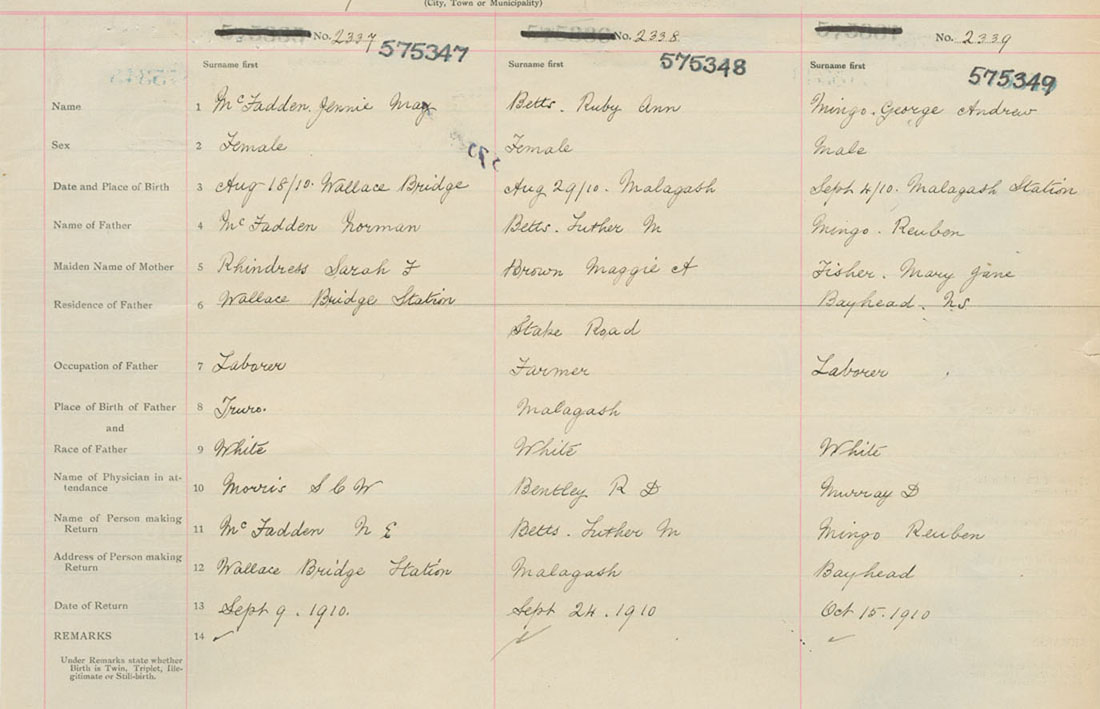 (City, Town or Municipality)
No. 2337 575347 No. 2338 575348 No. 2339 575349
Surname first Surname first Surname first
Name 1 McFadden, Jennie May Betts. Ruby Ann Mingo. George Andrew
Sex 2 Female Female Male
Date and Place of Birth 3 Aug 18/10. Wallace Bridge Aug 29/10. Malagash Sept 4/10. Malagash Station
Name of Father 4 McFadden Norman Betts. Luther M Mingo. Reuben
Maiden Name of Mother 5 Rhindress Sarah F Brown Maggie A Fisher. Mary Jane
Residence of Father 6 Wallace Bridge Station Stake Road Bayhead. N.S
Occupation of Father 7 Laborer Farmer Laborer
Place of Birth of Father 8 Truro. Malagash
and
Race of Father 9 White White White
Name of Physician in at-
tendance 10 Morris S C W Bentley R D Murray D
Name of Person making
Return 11 McFadden N E Betts. Luther M Mingo Reuben
Address of Person making
Return 12 Wallace Bridge Station Malagash Bayhead
Date of Return 13 Sept 9. 1910. Sept 24. 1910 Oct 15. 1910
REMARKS 14
Under Remarks state whether
Birth is Twin, Triplet, Ille-
gitimate or Still-birth.